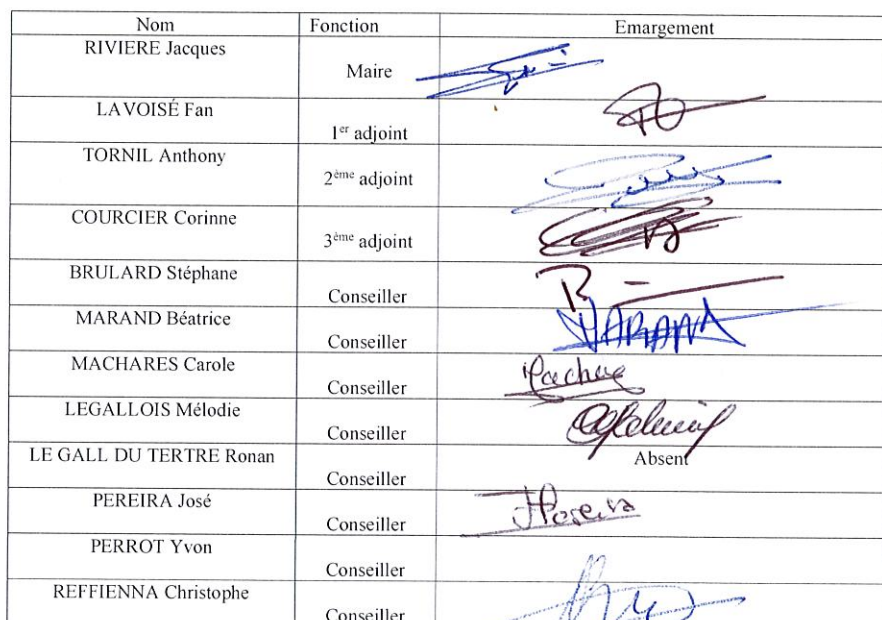 Nom Fonction Emargement
RIVIERE Jacques
Maire
LAVOISÉ Fan
1er adjoint
TORNIL Anthony
2ème adjoint
COURCIER Corinne
3ème adjoint
BRULARD Stéphane
Conseiller
MARAND Béatrice
Conseiller MARAND
MACHARES Carole
Conseiller
LEGALLOIS Mélodie
Conseiller
LE GALL DU TERTRE Ronan Absent
Conseiller
PEREIRA José
Conseiller JPereira
PERROT Yvon
Conseiller
REFFIENNA Christophe
Conseiller